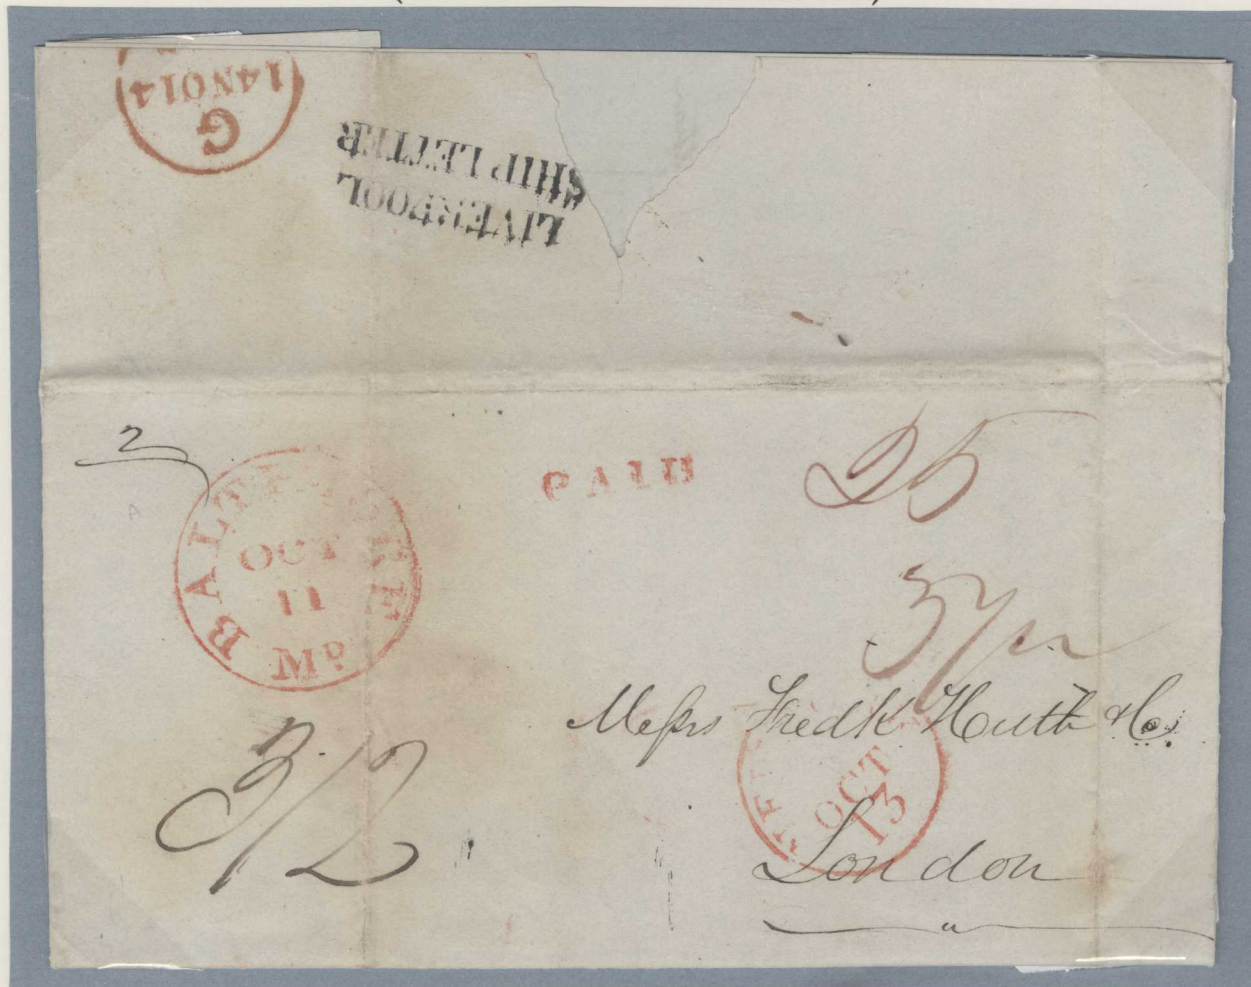 G
14NO14
LIVERPOOL
SHIP LETTER
2
BALTIMORE
OCT
11
Md
PAID
25
3/2
Messrs Fredk Huth & Co.
OCT
13
London